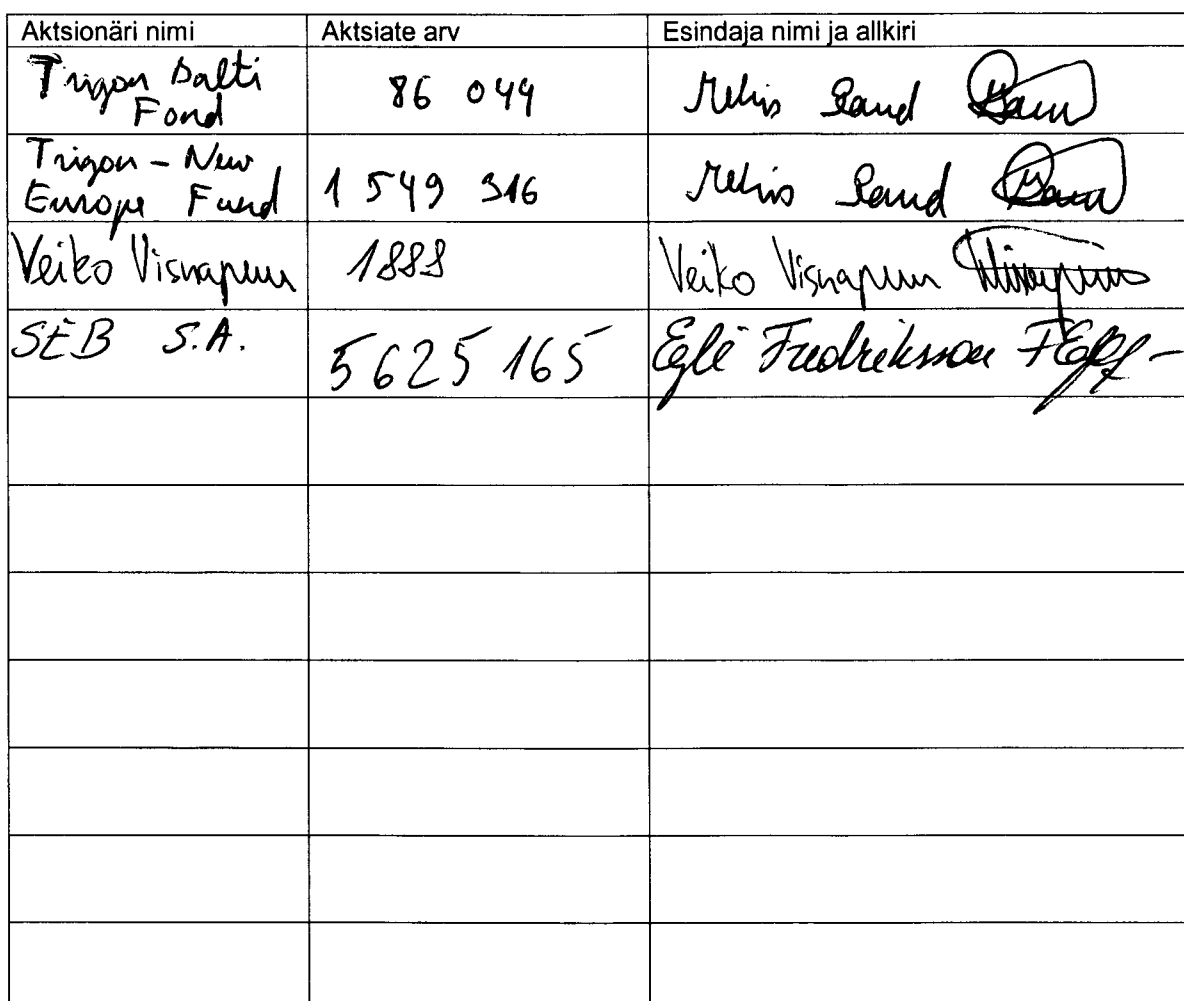 Aktsionäri nimi Aktsiate arv Esindaja nimi ja allkiri
Trigon Balti
Fond
86 044
Trigon - New
Europe Fund
1 549 316
Veiko Visnapuu 1888 Veiko Visnapuu
SEB S.A. 5625 165 Eglé Fredriksson